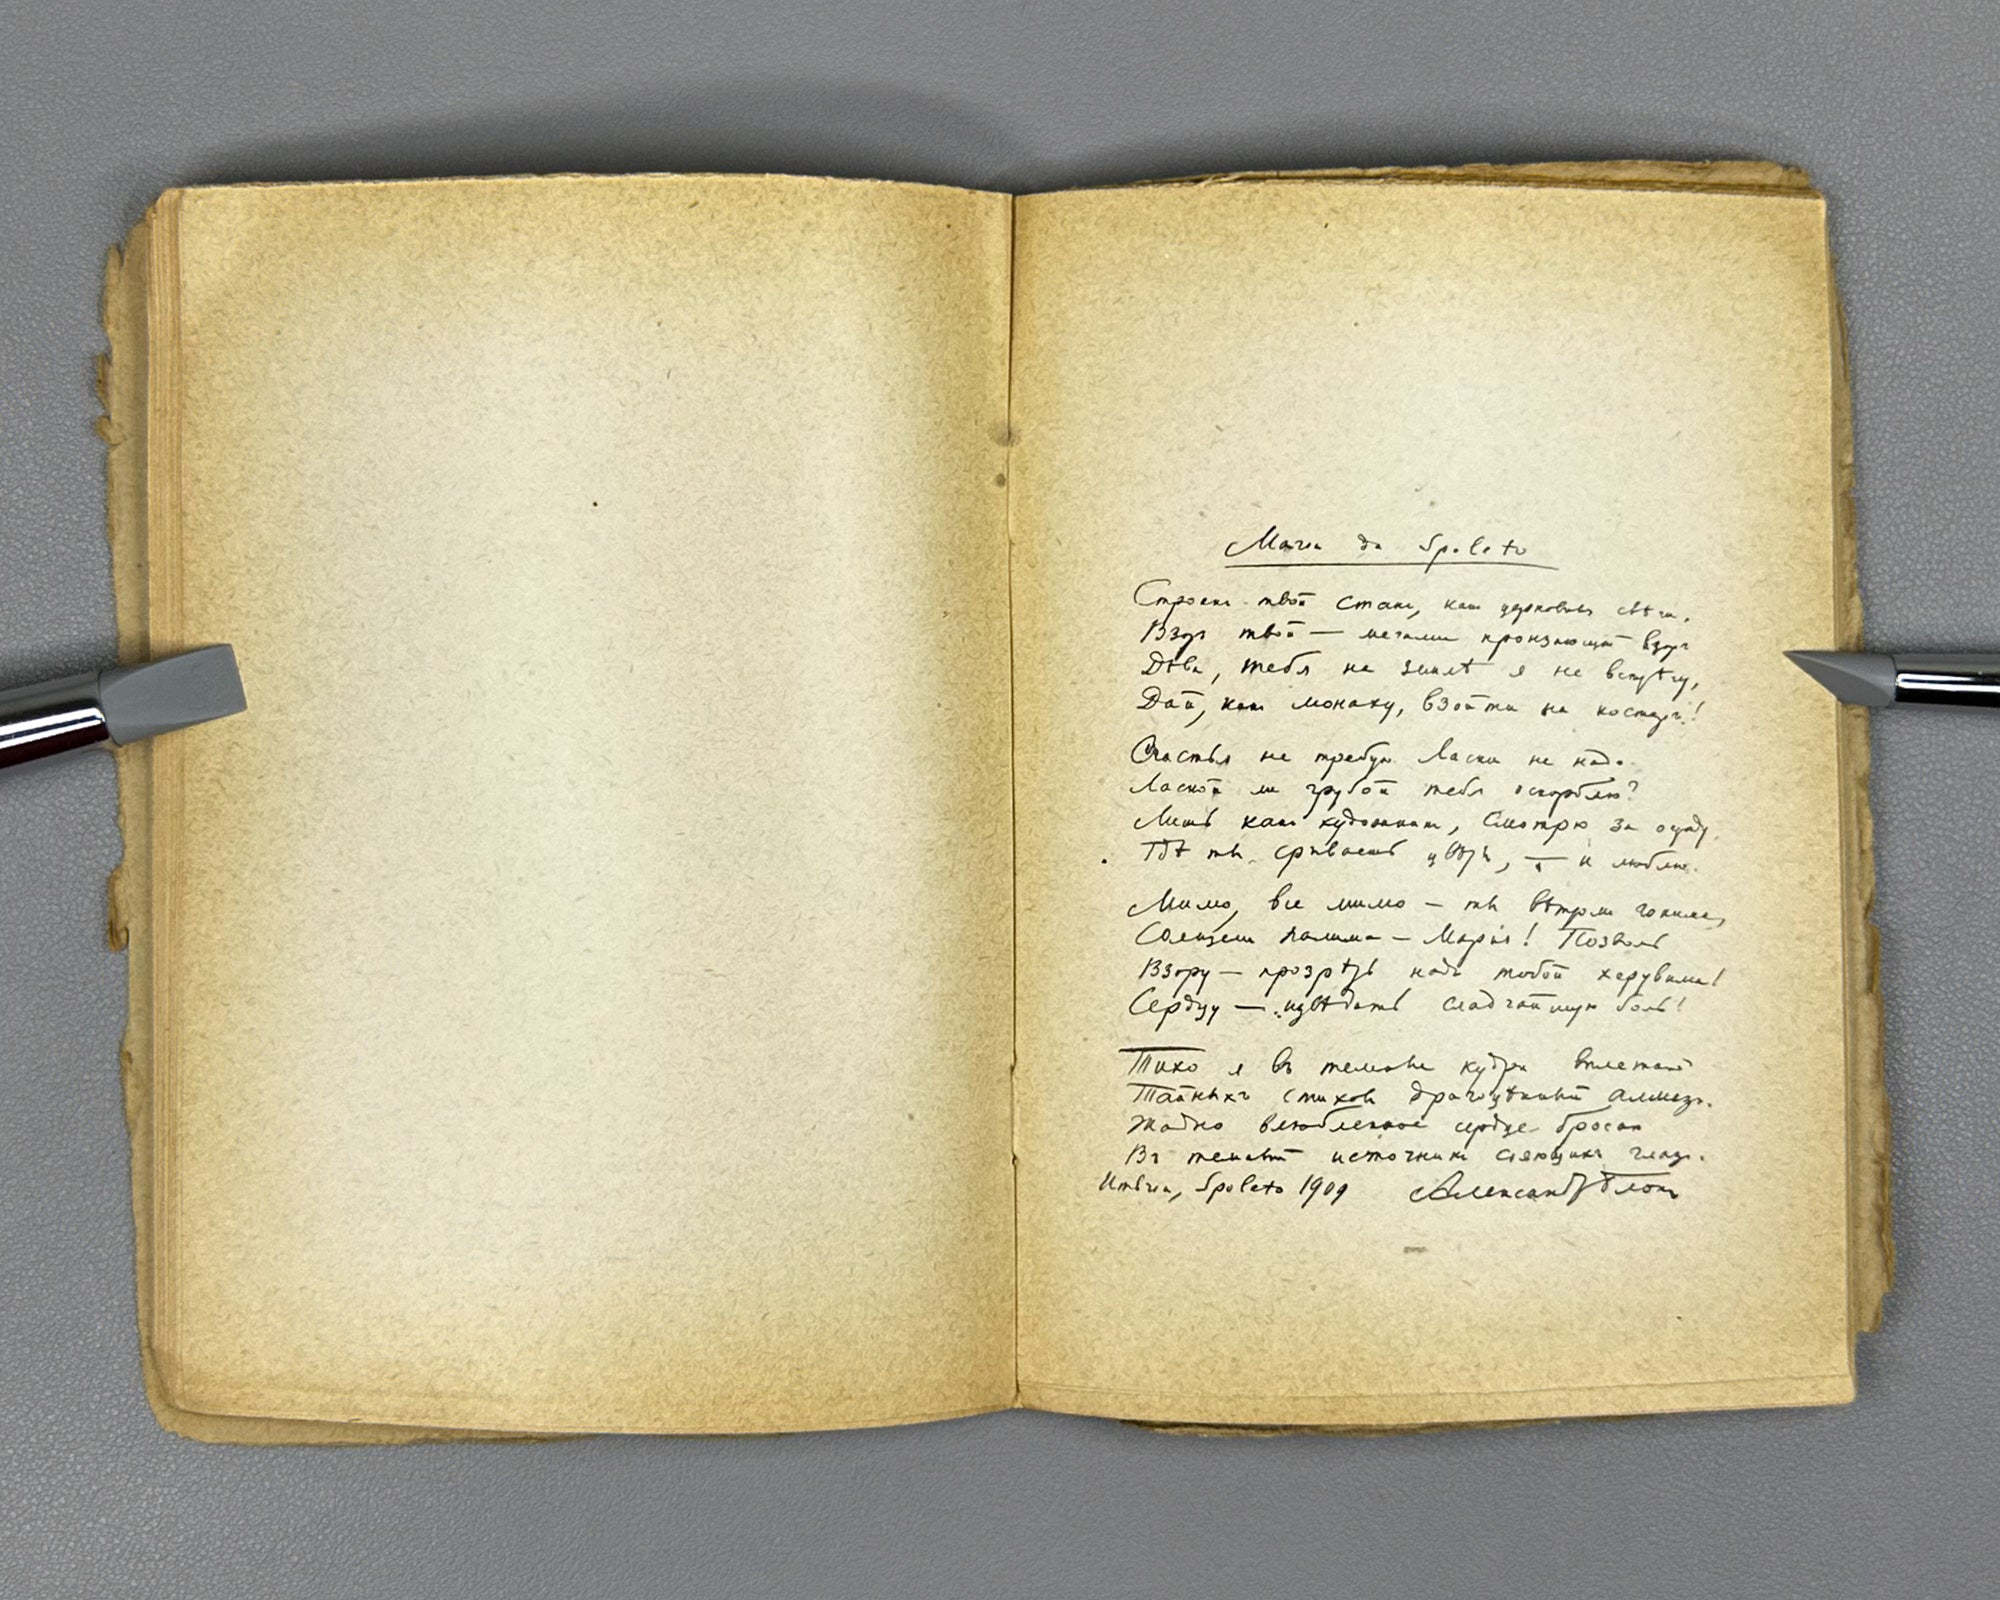 Maria da Spoleto
Строенъ твой станъ, какъ церковныя свѣчи.
Взоръ твой — мечами пронзающій взоръ
Дѣва, тебя на землѣ я не встрѣчу,
Дай, какъ монаху, взойти на костеръ!
Счастья не требую. Ласки не надо.
Лаской ли грубой тебя оскорблю?
Лишь какъ художникъ, смотрю за ограду,
Гдѣ ты срываешь цвѣты, — и люблю.
Мимо, все мимо — ты вѣтромъ гонима,
Солнцемъ палима — Марія! Позволь
Взору — прозрѣть надъ тобой херувима!
Сердцу — извѣдать сладчайшую боль!
Тихо я въ темные кудри вплетаю
Тайныхъ стиховъ драгоцѣнный алмазъ.
Жадно влюбленное сердце бросаю
Въ темный источникъ сіяющихъ глазъ.
Umbria, Spoleto 1909 Александръ Блокъ